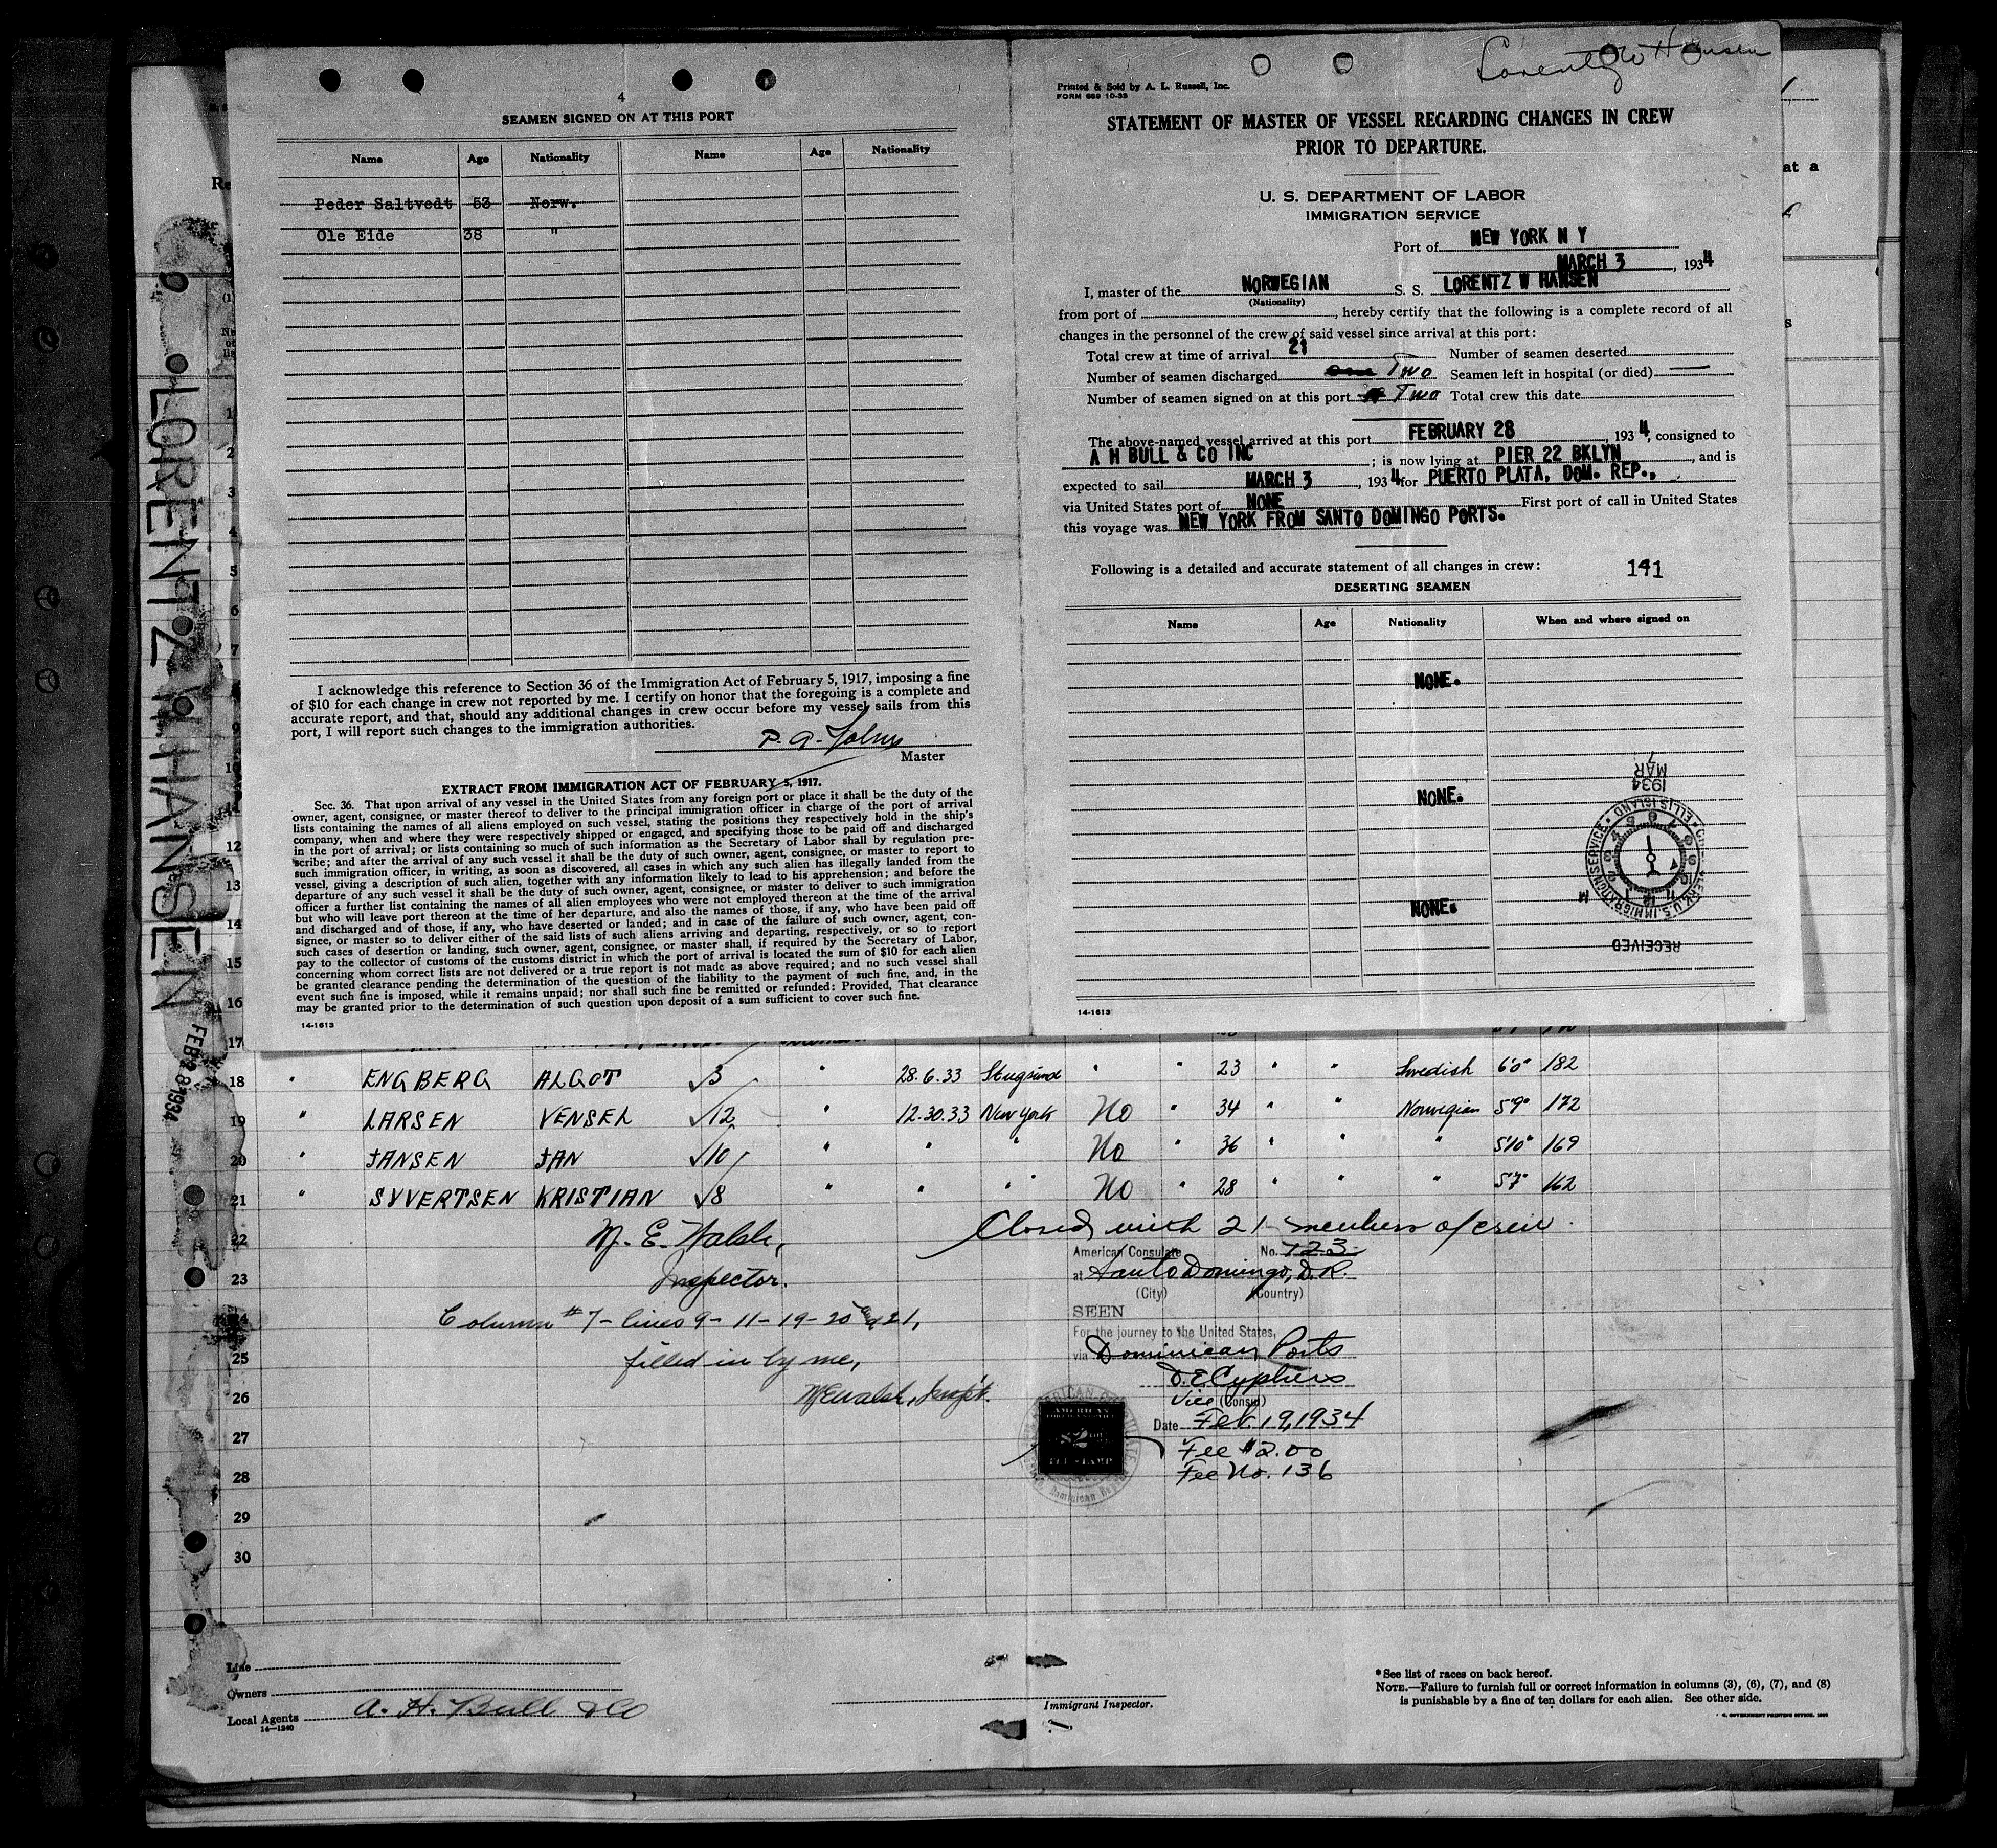 4
SEAMEN SIGNED ON AT THIS PORT
Name Age Nationality Name Age Nationality
Peder Saltvedt 53 Norw.
Ole Eide 38 "
I acknowledge this reference to Section 36 of the Immigration Act of February 5, 1917, imposing a fine
of $10 for each change in crew not reported by me. I certify on honor that the foregoing is a complete and
accurate report, and that, should any additional changes in crew occur before my vessel sails from this
port, I will report such changes to the immigration authorities.
P. A.
Master
EXTRACT FROM IMMIGRATION ACT OF FEBRUARY 5, 1917.
Sec. 36. That upon arrival of any vessel in the United States from any foreign port or place it shall be the duty of the
owner, agent, consignee, or master thereof to deliver to the principal immigration officer in charge of the port of arrival
lists containing the names of all aliens employed on such vessel, stating the positions they respectively hold in the ship's
company, when and where they were respectively shipped or engaged, and specifying those to be paid off and discharged
in the port of arrival; or lists containing so much of such information as the Secretary of Labor shall by regulation pre-
scribe; and after the arrival of any such vessel it shall be the duty of such owner, agent, consignee, or master to report to
such immigration officer, in writing, as soon as discovered, all cases in which any such alien has illegally landed from the
vessel, giving a description of such alien, together with any information likely to lead to his apprehension; and before the
departure of any such vessel it shall be the duty of such owner, agent, consignee, or master to deliver to such immigration
officer a further list containing the names of all alien employees who were not employed thereon at the time of the arrival
but who will leave port thereon at the time of her departure, and also the names of those, if any, who have been paid off
and discharged and of those, if any, who have deserted or landed; and in case of the failure of such owner, agent, con-
signee, or master so to deliver either of the said lists of such aliens arriving and departing, respectively, or so to report
such cases of desertion or landing, such owner, agent, consignee, or master shall, if required by the Secretary of Labor,
pay to the collector of customs of the customs district in which the port of arrival is located the sum of $10 for each alien
concerning whom correct lists are not delivered or a true report is not made as above required; and no such vessel shall
be granted clearance pending the determination of the question of the liability to the payment of such fine, and, in the
event such fine is imposed, while it remains unpaid; nor shall such fine be remitted or refunded: Provided, That clearance
may be granted prior to the determination of such question upon deposit of a sum sufficient to cover such fine.
14-1613
Lorentz W Hansen
Printed & Sold by A. L. Russell, Inc.
FORM 689 10-33
STATEMENT OF MASTER OF VESSEL REGARDING CHANGES IN CREW
PRIOR TO DEPARTURE.
U. S. DEPARTMENT OF LABOR
IMMIGRATION SERVICE
Port of NEW YORK N Y
MARCH 3, 1934
I, master of the NORWEGIAN S. S. LORENTZ W HANSEN
(Nationality)
from port of , hereby certify that the following is a complete record of all
changes in the personnel of the crew of said vessel since arrival at this port:
Total crew at time of arrival 21 Number of seamen deserted
Number of seamen discharged one Two Seamen left in hospital (or died)
Number of seamen signed on at this port Two Total crew this date
The above-named vessel arrived at this port FEBRUARY 28, 1934, consigned to
A H BULL & CO INC ; is now lying at PIER 22 BKLYN, and is
expected to sail MARCH 3, 1934 for PUERTO PLATA, DOM. REP.,
via United States port of NONE First port of call in United States
this voyage was NEW YORK FROM SANTO DOMINGO PORTS.
Following is a detailed and accurate statement of all changes in crew: 141
DESERTING SEAMEN
Name Age Nationality When and where signed on
NONE.
NONE.
NONE.
MAR 7
1934
ELLIS ISLAND
CLERK, U.S. IMMIGRATION SERVICE
RECEIVED
14-1613
LORENTZ W HANSEN
FEB 28 1934
at a
1
2
3
4
5
6
7
9
10
11
12
13
14
15
16
17
18 " ENGBERG ALGOT 3 " 28.6.33 Stugsund " " 23 " " Swedish 6'0" 182
19 " LARSEN VENSEL 12 " 12.30.33 New York No " 34 " " Norwegian 5'9" 172
20 " JANSEN JAN 10 " " " No " 36 " " " 5'10" 169
21 " SYVERTSEN KRISTIAN 8 " " " No " 28 " " " 5'7" 162
22 M. E. Walsh, Closed with 21 members of crew.
American Consulate No. 123
23 Inspector. at Santo Domingo, D.R.
(City) (Country)
SEEN
24 Column #7 - lines 9-11-19-20 & 21,
For the journey to the United States,
25 filled in by me, via Dominican Ports
D.E. Cyphers
26 M E Walsh, Insp't. Vice (Consul)
Date Feb. 19, 1934
27 Fee $2.00
28 Fee No. 136
29
30
Line
Owners
Local Agents A. H. Bull & Co
14-1240
Immigrant Inspector.
* See list of races on back hereof.
NOTE.—Failure to furnish full or correct information in columns (3), (6), (7), and (8)
is punishable by a fine of ten dollars for each alien. See other side.